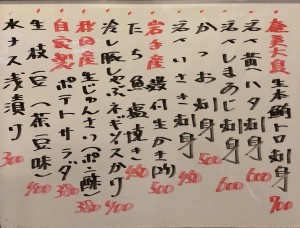 奄美大島 生本鮪トロ刺身 700
活〆黄ハタ刺身 600
活〆しまあじ刺身 600
かつお刺身 500
活〆いさき刺身 480
岩手産 殻付生かき(1ケ) 500
たち魚塩焼き 480
冷し豚しゃぶネギソースかけ 400
秋田産 生じゅんさい(ポン酢) 380
自家製 ポテトサラダ 380
生枝豆(茶豆味) 400
水ナス浅漬け 300